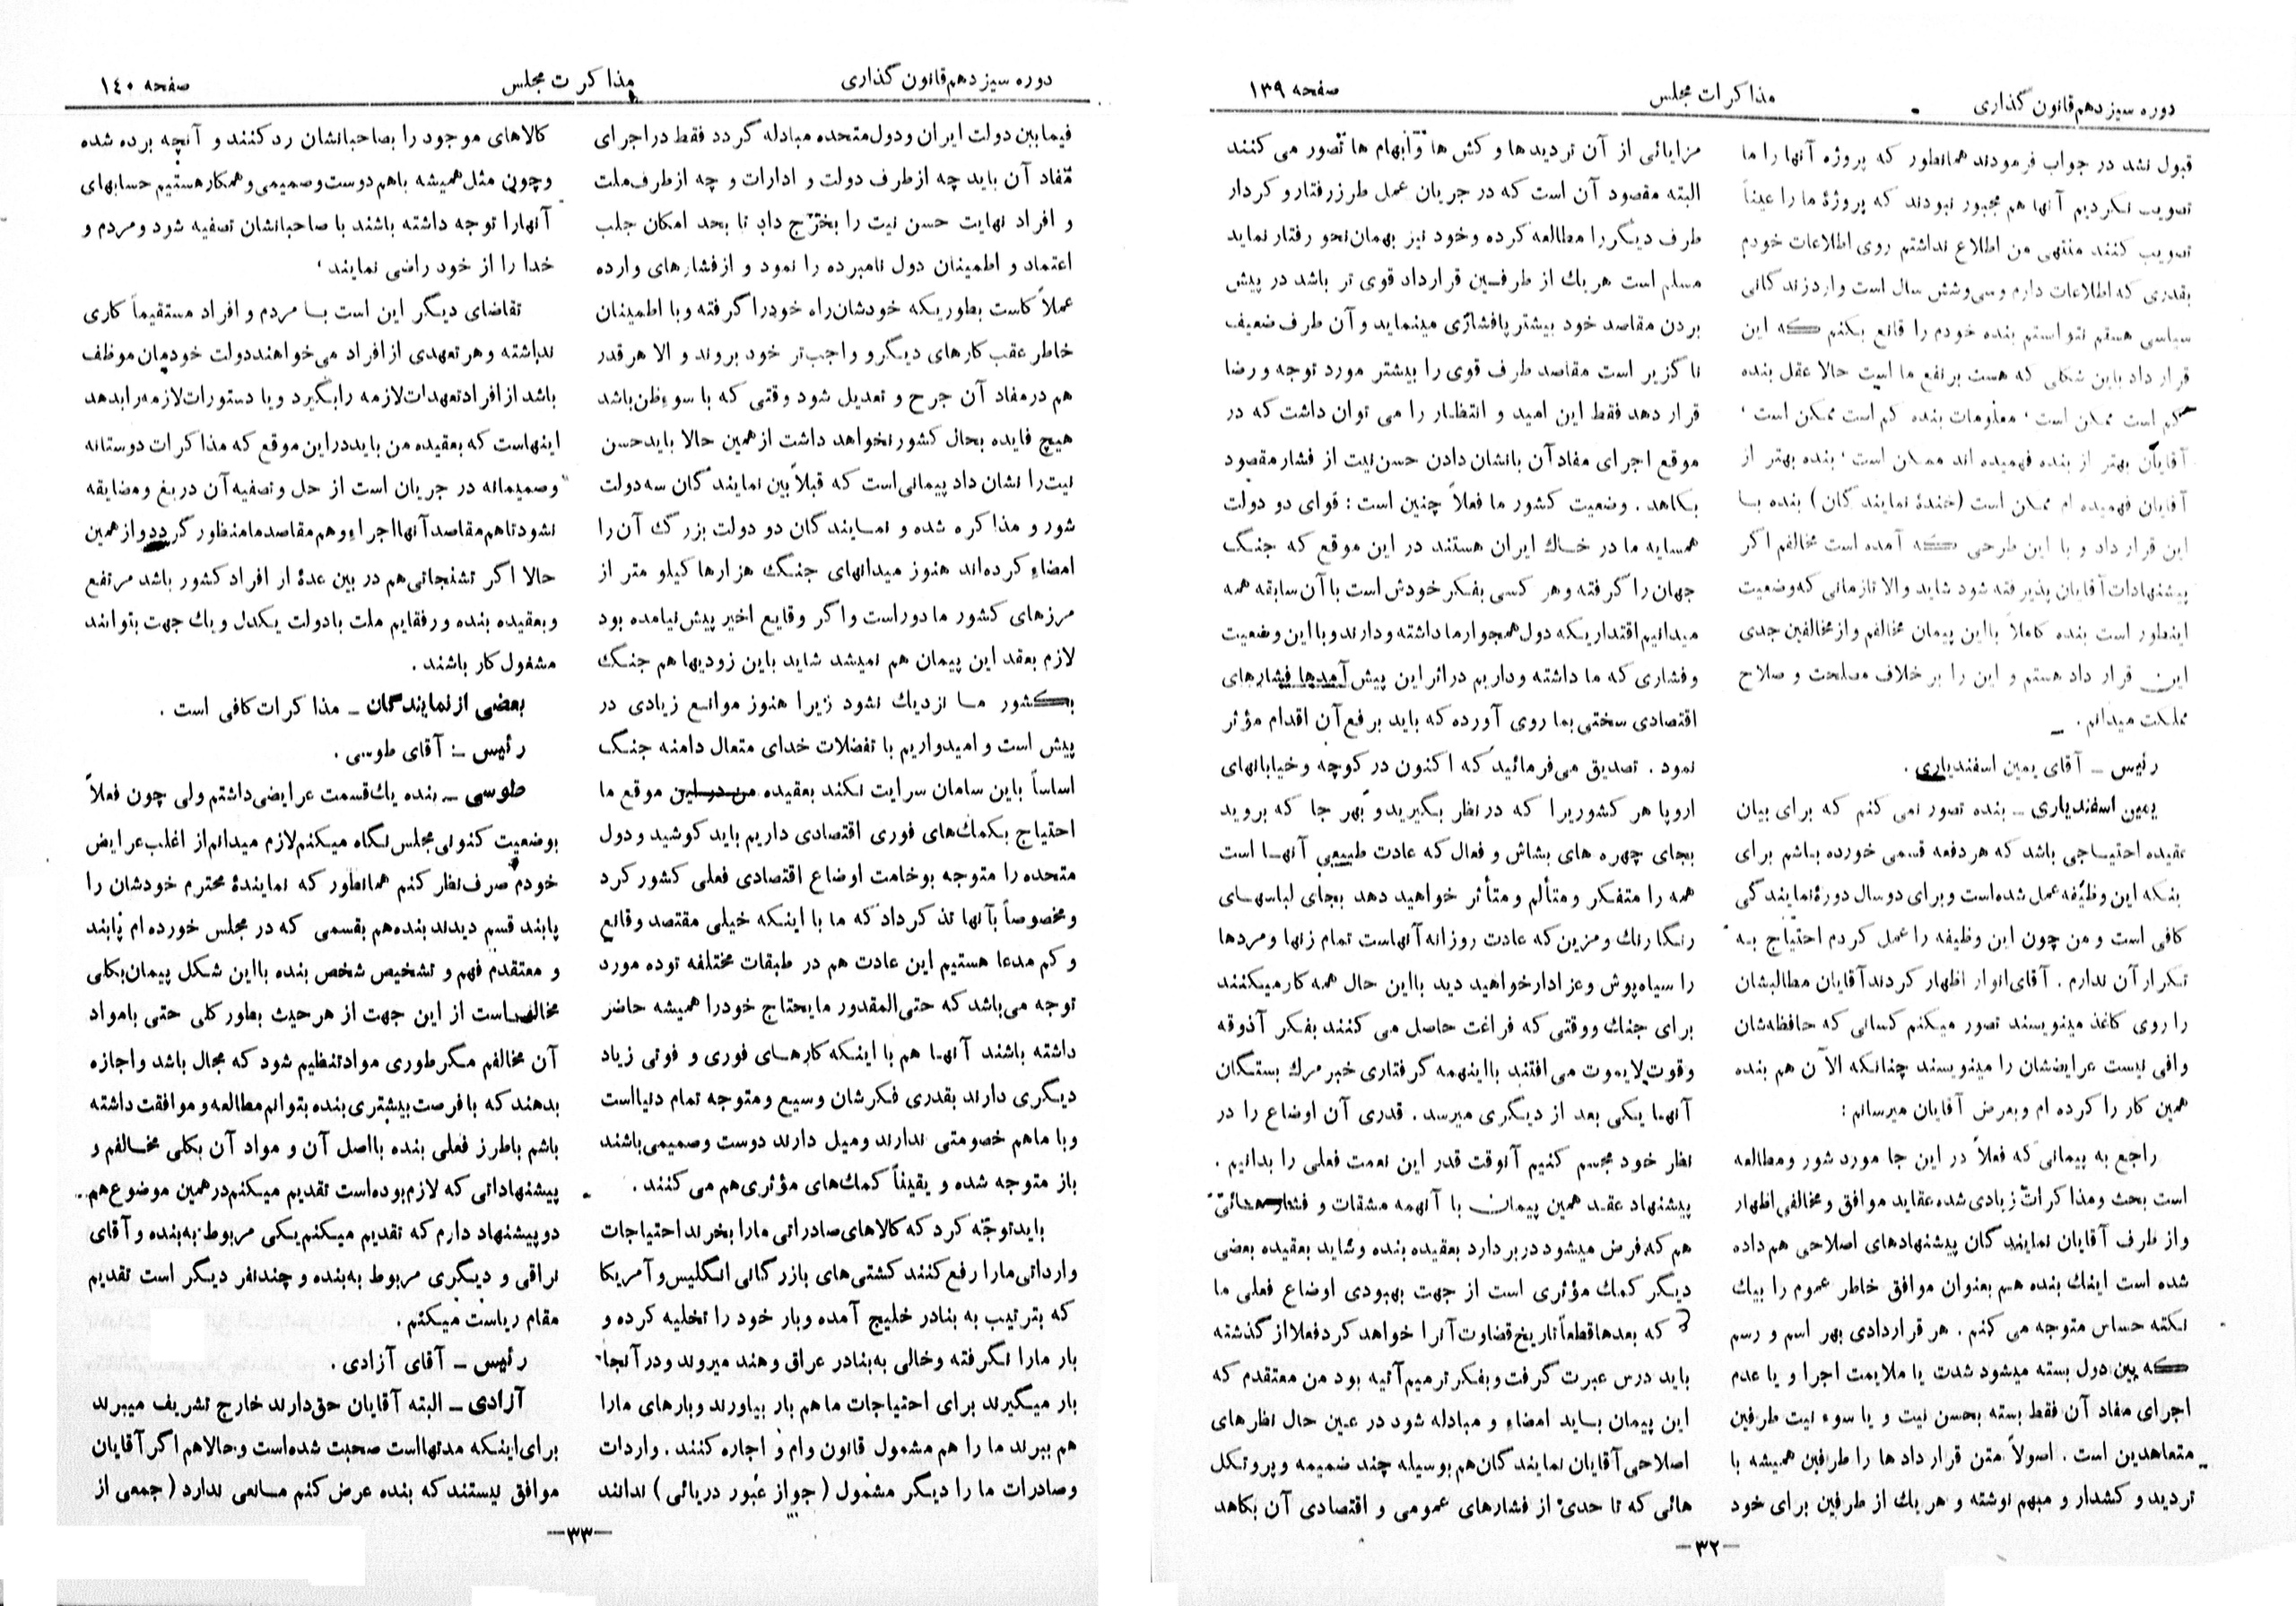 دوره سیزدهم قانون گذاری
مذاکرات مجلس
صفحه ۱۳۹
قبول نشد در جواب فرمودند همانطور که پروژه آنها را ما
تصویب نکردیم آنها هم مجبور نبودند که پروژهٔ ما را عیناً
تصویب کنند منتهی من اطلاع نداشتم روی اطلاعات خودم
بقدری که اطلاعات دارم وسی وشش سال است وارد زندگانی
سیاسی هستم نتوانستم بنده خودم را قانع بکنم که این
قرار داد باین شکلی که هست بر نفع ما است حالا عقل بنده
کم است ممکن است ، معلومات بنده کم است ممکن است ،
آقایان بهتر از بنده فهمیده اند ممکن است ، بنده بهتر از
آقایان فهمیده ام ممکن است (خندهٔ نمایندگان) بنده با
این قرار داد و با این طرحی که آمده است مخالفم اگر
پیشنهادات آقایان پذیرفته شود شاید والا تا زمانی که وضعیت
اینطور است بنده کاملا با این پیمان مخالفم و از مخالفین جدی
این قرار داد هستم و این را بر خلاف مصلحت و صلاح
مملکت میدانم .
رئیس ــ آقای یمین اسفندیاری .
یمین اسفندیاری ــ بنده تصور نمی کنم که برای بیان
عقیده احتیاجی باشد که هر دفعه قسمی خورده باشم برای
بنکه این وظیفه عمل شده است و برای دو سال دورهٔ نمایندگی
کافی است و من چون این وظیفه را عمل کردم احتیاج به
تکرار آن ندارم . آقای انوار اظهار کردند آقایان مطالبشان
را روی کاغذ مینویسند تصور میکنم کسانی که حافظه شان
وافی نیست عرایضشان را مینویسند چنانکه الآن هم بنده
همین کار را کرده ام و بعرض آقایان میرسانم :
راجع به پیمانی که فعلاً در این جا مورد شور ومطالعه
است بحث ومذاکرات زیادی شده عقاید موافق و مخالفی اظهار
واز طرف آقایان نمایندگان پیشنهادهای اصلاحی هم داده
شده است اینک بنده هم بعنوان موافق خاطر عموم را بیک
نکته حساس متوجه می کنم . هر قراردادی بهر اسم و رسم
که بین دول بسته میشود شدت یا ملایمت اجرا و یا عدم
اجرای مفاد آن فقط بسته بحسن نیت و یا سوء نیت طرفین
متعاهدین است . اصولاً متن قرار داد ها را طرفین همیشه با
تردید و کشدار و مبهم نوشته و هر یک از طرفین برای خود
مزایائی از آن تردیدها و کش ها و ابهام ها تصور می کنند
البته مقصود آن است که در جریان عمل طرز رفتار و کردار
طرف دیگر را مطالعه کرده و خود نیز بهمان نحو رفتار نماید
مسلم است هر یک از طرفین قرارداد قوی تر باشد در پیش
بردن مقاصد خود بیشتر پافشاری مینماید و آن طرف ضعیف
ناگزیر است مقاصد طرف قوی را بیشتر مورد توجه و رضا
قرار دهد فقط این امید و انتظار را می توان داشت که در
موقع اجرای مفاد آن بانشان دادن حسن نیت از فشار مقصود
بکاهد . وضعیت کشور ما فعلاً چنین است : قوای دو دولت
همسایه ما در خاک ایران هستند در این موقع که جنگ
جهان را گرفته و هر کسی بفکر خودش است با آن سابقه همه
میدانیم اقتداریکه دول همجوار ما داشته و دارند و با این وضعیت
وفشاری که ما داشته و داریم در اثر این پیش آمدها فشارهای
اقتصادی سختی بما روی آورده که باید برفع آن اقدام مؤثر
نمود . تصدیق می فرمائید که اکنون در کوچه و خیابانهای
اروپا هر کشوریرا که در نظر بگیرید و بهر جا که بروید
بجای چهره های بشاش و فعال که عادت طبیعی آنها است
همه را متفکر و متألم و متأثر خواهید دهد بجای لباسهای
رنگارنگ و مزین که عادت روزانه آنهاست تمام زنها و مردها
را سیاه پوش و عزادار خواهید دید با این حال همه کار میکنند
برای جنگ و وقتی که فراغت حاصل می کنند بفکر آذوقه
وقوت لایموت می افتند با اینهمه گرفتاری خبر مرگ بستگان
آنها یکی بعد از دیگری میرسد . قدری آن اوضاع را در
نظر خود مجسم کنیم آنوقت قدر این نعمت فعلی را بدانیم .
پیشنهاد عقد همین پیمان با آنهمه مشقات و فشارهائی
هم که فرض میشود در بر دارد بعقیده بنده و شاید بعقیده بعضی
دیگر کمک مؤثری است از جهت بهبودی اوضاع فعلی ما
که بعدها قطعاً تاریخ قضاوت آنرا خواهد کرد فعلا از گذشته
باید درس عبرت گرفت و بفکر ترمیم آتیه بود من معتقدم که
این پیمان باید امضاء و مبادله شود در عین حال نظرهای
اصلاحی آقایان نمایندگان هم بوسیله چند ضمیمه و پروتکل
هائی که تا حدی از فشارهای عمومی و اقتصادی آن بکاهد
ــ۳۲ــ
دوره سیزدهم قانون گذاری
مذاکرات مجلس
صفحه ۱۴۰
فیمابین دولت ایران و دول متحده مبادله گردد فقط در اجرای
مفاد آن باید چه از طرف دولت و ادارات و چه از طرف ملت
و افراد نهایت حسن نیت را بخرج داد تا بحد امکان جلب
اعتماد و اطمینان دول نامبرده را نمود و از فشارهای وارده
عملاً کاست بطوریکه خودشان راه خود را گرفته و با اطمینان
خاطر عقب کارهای دیگر و واجب تر خود بروند و الا هر قدر
هم در مفاد آن جرح و تعدیل شود وقتی که با سوء ظن باشد
هیچ فایده بحال کشور نخواهد داشت از همین حالا باید حسن
نیت را نشان داد پیمانی است که قبلاً بین نمایندگان سه دولت
شور و مذاکره شده و نمایندگان دو دولت بزرگ آن را
امضاء کرده اند هنوز میدانهای جنگ هزارها کیلو متر از
مرزهای کشور ما دور است و اگر وقایع اخیر پیش نیامده بود
لازم بعقد این پیمان هم نمیشد شاید باین زودیها هم جنگ
بکشور ما نزدیک نشود زیرا هنوز موانع زیادی در
پیش است و امیدواریم با تفضلات خدای متعال دامنه جنگ
اساساً باین سامان سرایت نکند بعقیده من در این موقع ما
احتیاج بکمک های فوری اقتصادی داریم باید کوشید و دول
متحده را متوجه بوخامت اوضاع اقتصادی فعلی کشور کرد
و مخصوصاً بآنها تذکر داد که ما با اینکه خیلی مقتصد و قانع
و کم مدعا هستیم این عادت هم در طبقات مختلفه توده مورد
توجه می باشد که حتی المقدور مایحتاج خود را همیشه حاضر
داشته باشند آنها هم با اینکه کارهای فوری و فوتی زیاد
دیگری دارند بقدری فکرشان وسیع و متوجه تمام دنیا است
وبا ما هم خصومتی ندارند و میل دارند دوست و صمیمی باشند
باز متوجه شده و یقیناً کمک های مؤثری هم می کنند .
باید توجه کرد که کالاهای صادراتی ما را بخرند احتیاجات
وارداتی ما را رفع کنند کشتی های بازرگانی انگلیس و آمریکا
که بترتیب به بنادر خلیج آمده و بار خود را تخلیه کرده و
بار ما را نگرفته و خالی به بنادر عراق و هند میروند و در آنجا
بار میگیرند برای احتیاجات ما هم بار بیاورند و بارهای ما را
هم ببرند ما را هم مشمول قانون وام و اجاره کنند . واردات
وصادرات ما را دیگر مشمول ( جواز عبور دریائی ) ندانند
کالاهای موجود را بصاحبانشان رد کنند و آنچه برده شده
وچون مثل همیشه باهم دوست و صمیمی و همکار هستیم حسابهای
آنها را توجه داشته باشند با صاحبانشان تصفیه شود و مردم و
خدا را از خود راضی نمایند ،
تقاضای دیگر این است با مردم و افراد مستقیماً کاری
نداشته و هر تعهدی از افراد می خواهند دولت خودمان موظف
باشد از افراد تعهدات لازمه را بگیرد و یا دستورات لازمه را بدهد
اینهاست که بعقیده من باید در این موقع که مذاکرات دوستانه
وصمیمانه در جریان است از حل و تصفیه آن دریغ و مضایقه
نشود تا هم مقاصد آنها اجراء و هم مقاصد ما منظور گردد و از همین
حالا اگر تشنجاتی هم در بین عدهٔ از افراد کشور باشد مرتفع
و بعقیده بنده و رفقایم ملت با دولت یکدل و یک جهت بتوانند
مشغول کار باشند .
بعضی از نمایندگان ــ مذاکرات کافی است .
رئیس ــ آقای طوسی .
طوسی ــ بنده یک قسمت عرایضی داشتم ولی چون فعلاً
بوضعیت کنونی مجلس نگاه میکنم لازم میدانم از اغلب عرایض
خودم صرف نظر کنم همانطور که نمایندهٔ محترم خودشان را
پابند قسم دیدند بنده هم بقسمی که در مجلس خورده ام پابند
و معتقدم فهم و تشخیص شخص بنده با این شکل پیمان بکلی
مخالف است از این جهت از هر حیث بطور کلی حتی با مواد
آن مخالفم مگر طوری مواد تنظیم شود که مجال باشد و اجازه
بدهند که با فرصت بیشتری بنده بتوانم مطالعه و موافقت داشته
باشم با طرز فعلی بنده با اصل آن و مواد آن بکلی مخالفم و
پیشنهاداتی که لازم بوده است تقدیم میکنم در همین موضوع هم
دو پیشنهاد دارم که تقدیم میکنم یکی مربوط به بنده و آقای
نراقی و دیگری مربوط به بنده و چند نفر دیگر است تقدیم
مقام ریاست میکنم .
رئیس ــ آقای آزادی .
آزادی ــ البته آقایان حق دارند خارج تشریف میبرند
برای اینکه مدتها است صحبت شده است و حالا هم اگر آقایان
موافق نیستند که بنده عرض کنم مانعی ندارد ( جمعی از
ــ۳۳ــ